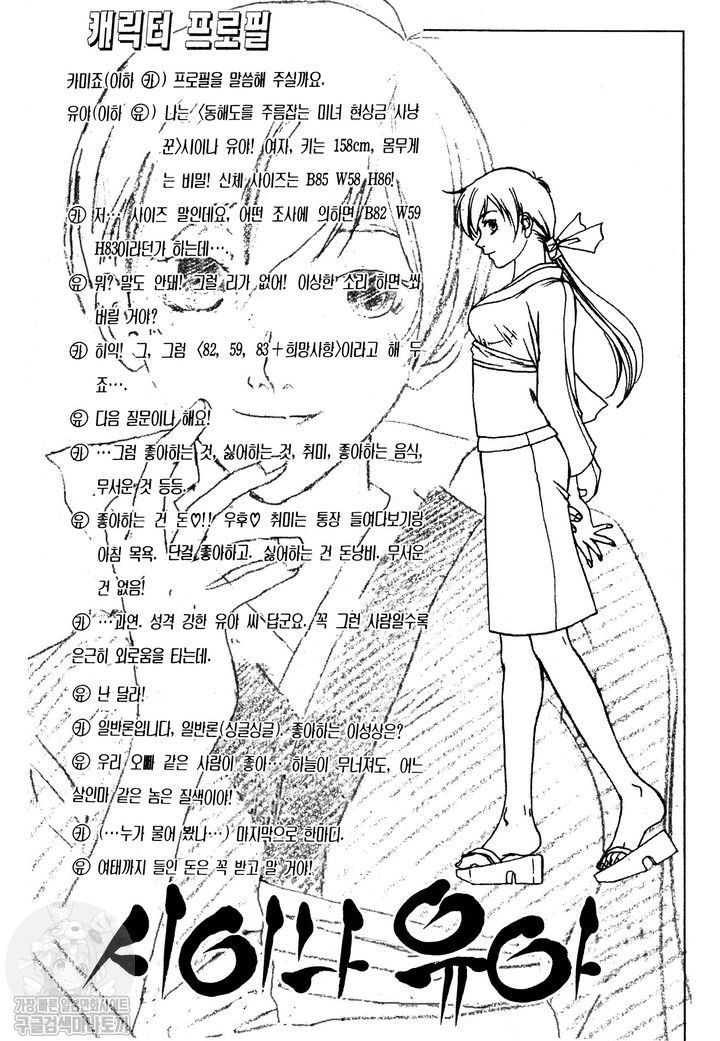 캐릭터 프로필
카미죠(이하 ㉮) 프로필을 말씀해 주실까요.
유야(이하 ㊌) 나는 〈동해도를 주름잡는 미녀 현상금 사냥
꾼〉시이나 유야! 여자, 키는 158cm, 몸무게
는 비밀! 신체 사이즈는 B85 W58 H86!
㉸ 저… 사이즈 말인데요, 어떤 조사에 의하면 B82 W59
H83이라던가 하는데…
㊌ 뭐? 말도 안돼! 그럴 리가 없어! 이상한 소리 하면 쏴
버릴 거야?
㉸ 히익! 그, 그럼 〈82, 59, 83＋희망사항〉이라고 해 두
죠….
㊌ 다음 질문이나 해요!
㉸ …그럼 좋아하는 것, 싫어하는 것, 취미, 좋아하는 음식,
무서운 것 등등.
㊌ 좋아하는 건 돈♡!! 우후♡ 취미는 통장 들여다보기랑
아침 목욕. 단걸 좋아하고. 싫어하는 건 돈낭비. 무서운
건 없음!
㉸ …과연. 성격 강한 유야 씨 답군요. 꼭 그런 사람일수록
은근히 외로움을 타는데.
㊌ 난 달라!
㉸ 일반론입니다, 일반론(싱글싱글). 좋아하는 이성상은?
㊌ 우리 오빠 같은 사람이 좋아… 하늘이 무너져도, 어느
살인마 같은 놈은 질색이야!
㉸ (…누가 물어 봤나…) 마지막으로 한마디.
㊌ 여태까지 들인 돈은 꼭 받고 말 거야!
시이나 유야
가장 빠른 일본만화사이트
구글검색마나토끼